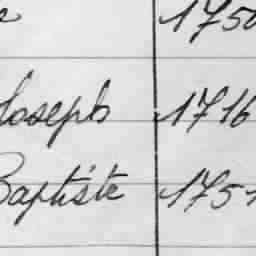 1750
Joseph 1716
Baptiste 1751